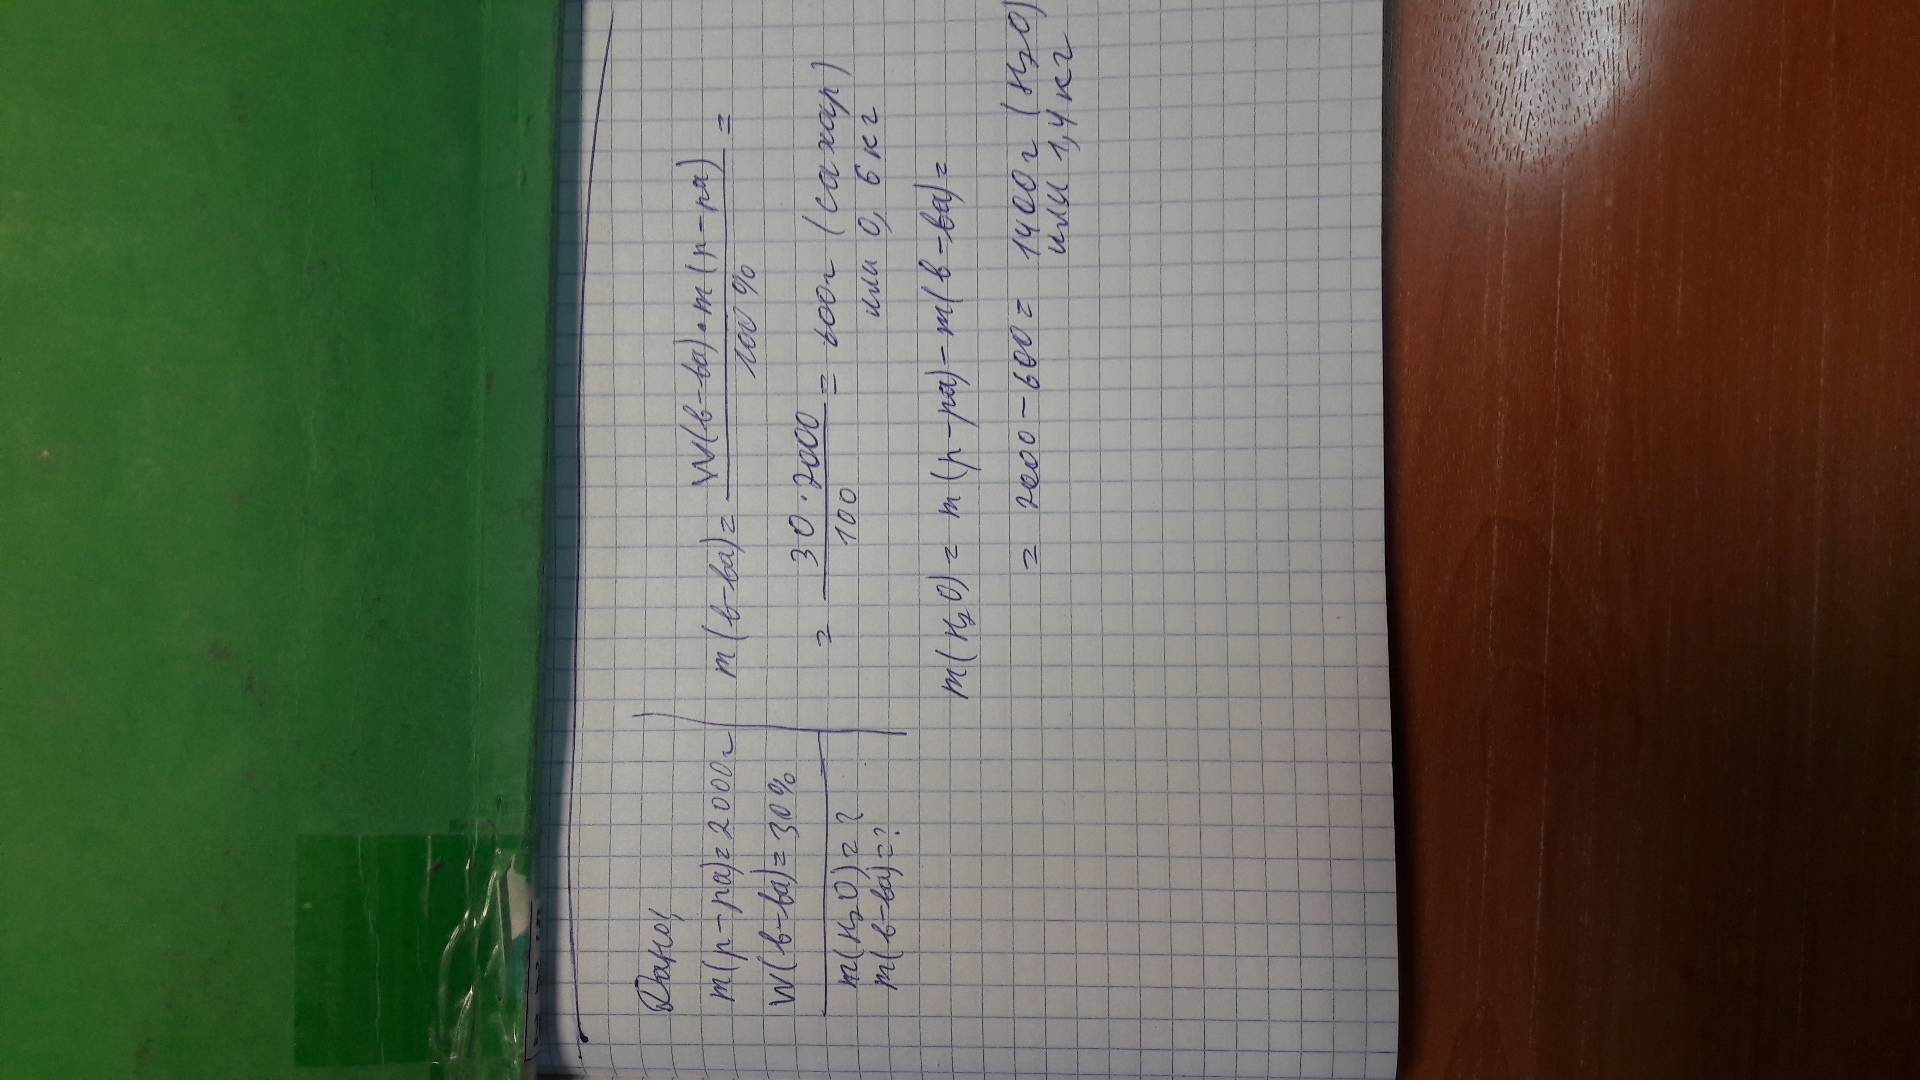 Дано:
m(р-ра)=2000г
W(в-ва)=30%
m(H₂O)=?
m(в-ва)=?
m(в-ва)= W(в-ва)•m(р-ра) =
100%
= 30·2000 = 600г (сахар)
100 или 0,6 кг
m(H₂O)= m(р-ра)-m(в-ва)=
= 2000-600= 1400г (H₂O)
или 1,4 кг